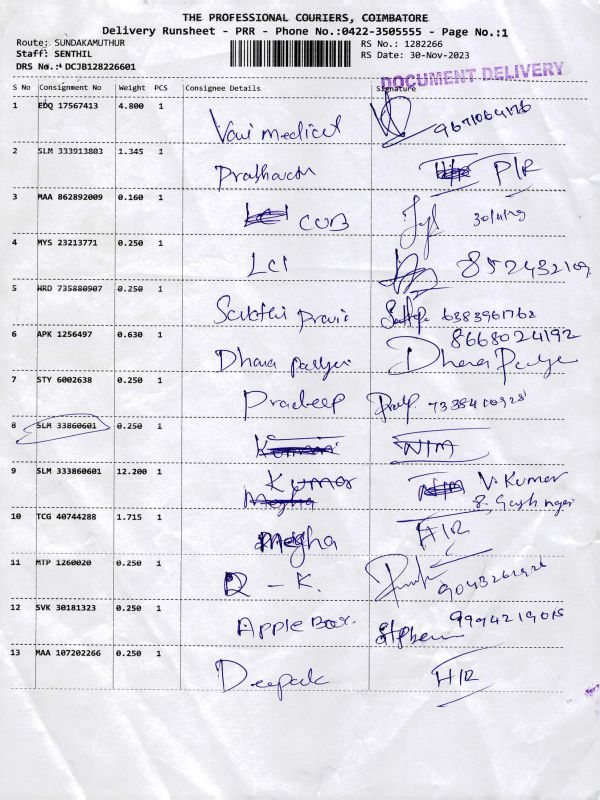 THE PROFESSIONAL COURIERS, COIMBATORE
Delivery Runsheet - PRR - Phone No.:0422-3505555 - Page No.:1
Route: SUNDAKAMUTHUR RS No.: 1282266
Staff: SENTHIL RS Date: 30-Nov-2023
DRS No.: DCJB128226601 DOCUMENT DELIVERY
S No Consignment No Weight PCS Consignee Details Signature
1 EDQ 17567413 4.800 1 Vani medical
2 SLM 333913803 1.345 1 P/R
3 MAA 862892009 0.160 1 CUB
4 MYS 23213771 0.250 1 LCI
5 HRD 735880907 0.250 1 Sakthi 6383961762
6 APK 1256497 0.630 1 Dhara 8668024192 Dhara
7 STY 6002638 0.250 1 Pradeep
8 SLM 33860601 0.250 1 N/M
9 SLM 333860601 12.200 1 Kumar V. Kumar
10 TCG 40744288 1.715 1 Megha H/R
11 MTP 1260020 0.250 1 R - K.
12 SVK 30181323 0.250 1 Apple Box. Stephen
13 MAA 107202266 0.250 1 Deepak H/R